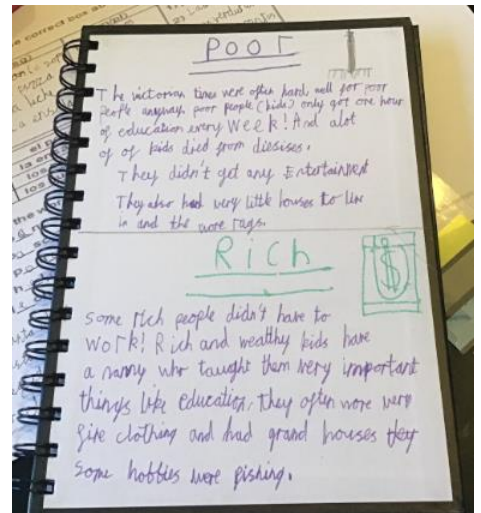 e correct box a
Poor
The victorian times were often hard, well for poor
people anyway, poor people (kids) only got one hour
of education every week! And alot
of of kids died from diesises.
They didn't get any Entertainment
They also had very little houses to live
in and the wore rags.
Rich
$
some rich people didn't have to
work! Rich and wealthy kids have
a nanny who taught them very important
things like education, they often wore very
fine clothing and had grand houses they
some hobbies were fishing.